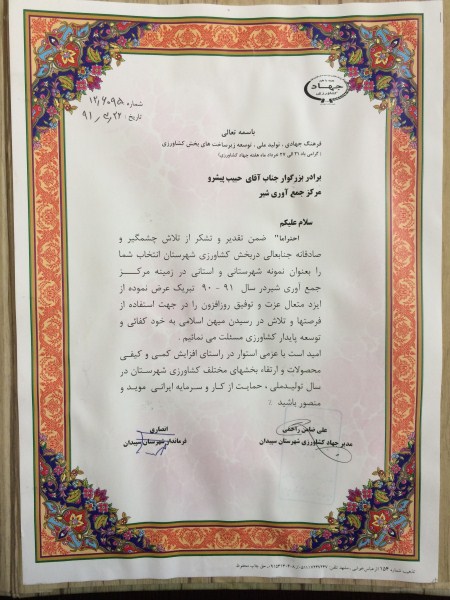 جهاد
شماره ۱۲/۶۰۹۵
تاریخ:
باسمه تعالی
فرهنگ جهادی ، تولید ملی ، توسعه زیرساخت های بخش کشاورزی
( گرامی باد ۲۱ الی ۲۷ خرداد ماه هفته جهاد کشاورزی)
برادر بزرگوار جناب آقای حبیب پیشرو
مرکز جمع آوری شیر
سلام علیکم
احتراما" ضمن تقدیر و تشکر از تلاش چشمگیر و
صادقانه جنابعالی دربخش کشاورزی شهرستان انتخاب شما
را بعنوان نمونه شهرستانی و استانی در زمینه مرکز
جمع آوری شیردر سال ۹۱ - ۹۰ تبریک عرض نموده از
ایزد متعال عزت و توفیق روزافزون را در جهت استفاده از
فرصتها و تلاش در رسیدن میهن اسلامی به خود کفائی و
توسعه پایدار کشاورزی مسئلت می نمائیم .
امید است با عزمی استوار در راستای افزایش کمی و کیفی
محصولات و ارتقاء بخشهای مختلف کشاورزی شهرستان در
سال تولیدملی ، حمایت از کار و سرمایه ایرانی موید و
منصور باشید ٪
علی نمایش راحمی
مدیر جهاد کشاورزی شهرستان سپیدان
انصاری
فرماندار شهرستان سپیدان